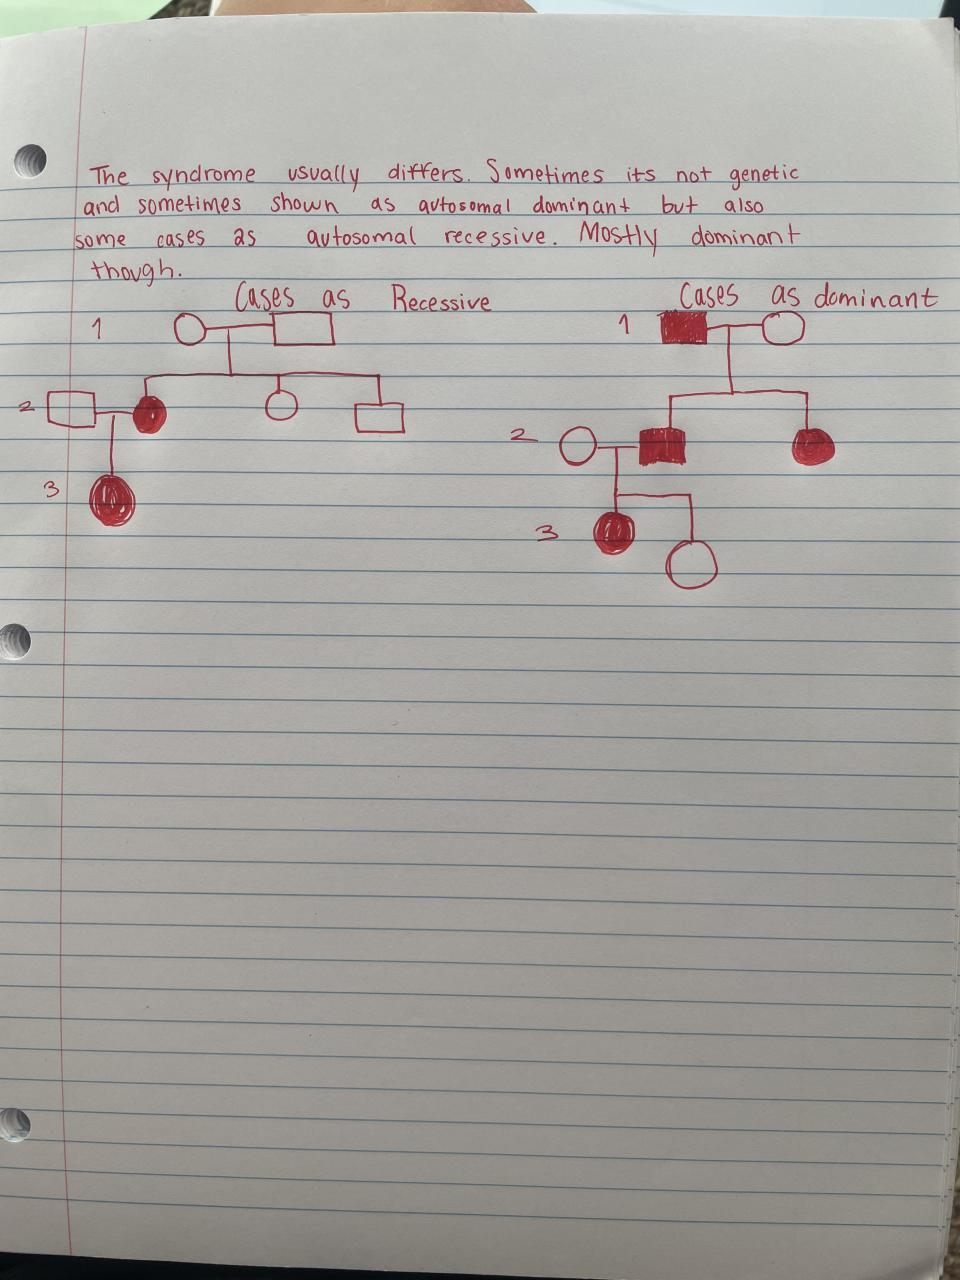 The syndrome usually differs. Sometimes its not genetic
and sometimes shown as autosomal dominant but also
some cases as autosomal recessive. Mostly dominant
though.
Cases as Recessive
1
2
3
Cases as dominant
1
2
3